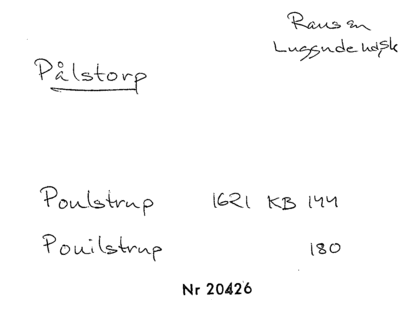 Raus sn
Luggude hdsk
Pålstorp
Poulstrup 1621 KB 144
Pouilstrup 180
Nr 20426